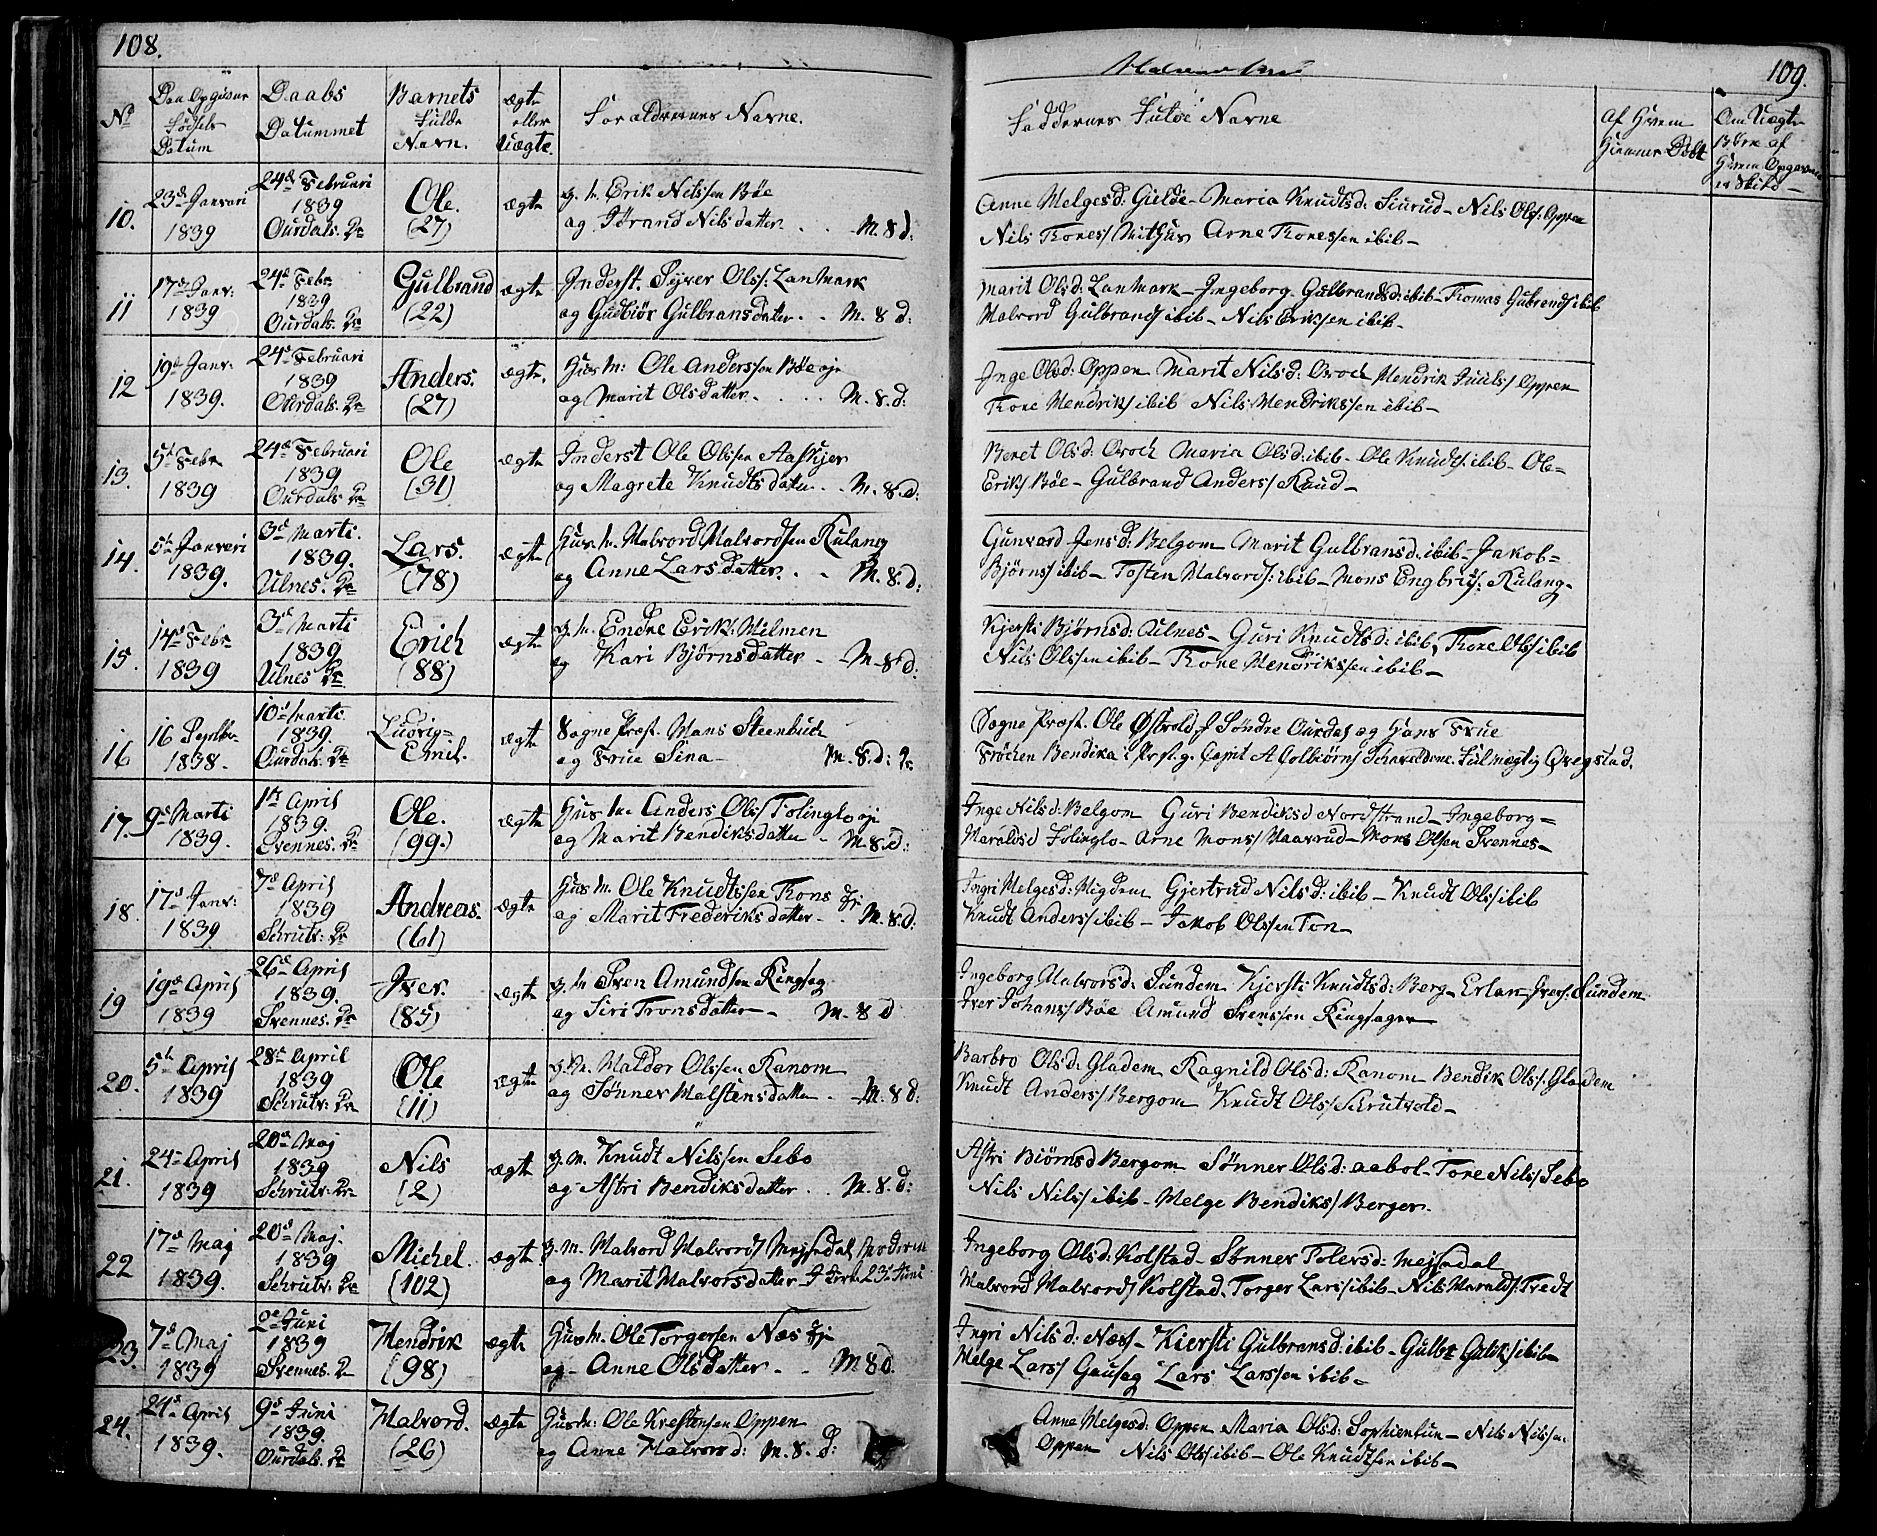 108.
109.
No
Den Opgivne
Fødsels
Datum
Daabs
Datummet
Barnets
Fulde
Navn.
ægte
eller
Uægte.
Foraldrernes Navne.
Faddernes Fulde Navne
Af Hvem
Hiemme Døbt
Om Uægte
Børn af
Hvem Opgivne
10.
23d Janvari
1839
24de Februari
1839
Ourdals. Ke
Ole.
(27)
ægte
g. m. Erik Nilssen Bøe
og Jørand Nilsdatter. . . M. 8 d:
Anne Helgesd: Gilde – Maria Knudtsd: – Nils Ols/ Oppen
Nils Trones/ Arne Tronessen ibib –
11
17de Janv:
1839
24de Febr.
1839
Ourdals. Ke
Gulbrand
(22)
ægte
Inderst. Syver Ols/: Lanmark
og Gudbiør Gulbransdater. . M. 8 d:
Marit Olsd: Lanmark – Ingeborg Gulbrandsd: ibib – Tromas Gulbrands/ ibib
Halvord Gulbrands/ ibib – Nils Erikssen ibib.
12
19de Janv:
1839.
24de Februari
1839
Ourdals. Ke
Anders.
(27)
ægte.
Huus M: Ole Anderssen Bøe eje
og Marit Olsdatter. . . . . M. 8. d:
Inge Olsd: Oppen Marit Nilsd: Hendrik Juuls/ Oppen
Trone Hendriks/ ibib Nils Hendrikssen ibib –
13.
5te Febr
1839
24de Februari
1839
Ourdals. Ke
Ole
(31)
ægte
Inderst Ole Olssen Aaskjer
og Magrete Knudtsdater. . M. 8. d:
Beret Olsd: Maria Olsd: ibib – Ole Knudts/: ibib – Ole =
Eriks/ Bøe – Gulbrand Anders/ Ruud –
14.
5te Janvari
1839.
3de Marti.
1839.
Ulnes. Ke
Lars.
(78)
ægte
Huus. M. Halvord Halvordssen Kulang
og Anne Larsdatter. . . M. 8. d:
Gunvard Jensd: Belgom Marit Gulbransd. ibib – Jakob =
Bjørns/ ibib – Tosten Halvords/: ibib – Mons Engbris/: Kulang –
15.
14de Febr
1839
3de Marti
1839
Ulnes Ke
Erich
(88)
ægte
g. m. Endre Erik/: Hilmen
og Kari Bjørnsdatter – M. 8 d:
Kjersti Bjørnsd: Ulnes – Guri Knudtsd: ibib, Trone Ols/ ibib
Nils Olssen ibib – Trone Hendrikssen ibib –
16
16 Septbr
1838.
10de Marti
1839.
Ourdals. Ke
Ludvig =
Emil.
ægte
Sogne Præst. Hans Steenbuch
og Frue Sina – M. 8. d:
Sogne Præst. Ole Østvold f Søndre Ourdal og Hans Frue
Frøken Bendika Fulmægtig Qvegstad.
17.
9de Marti
1839.
1ste April
1839.
Svennes. Ke
Ole.
(99.)
ægte
Huus m. Anders Ols/ Folinglo eje
og Marit Bendiksdatter – M. 8. d:
Inge Nilsd: Belgom Guri Bendiksd Nordstrand – Ingeborg =
Haraldsd Folinglo – Arne Mons/ Haavrud – Mons Olssen Svennes –
18.
17de Janv:
1839
7de April
1839
Schrutv: Ke
Andreas.
(61)
ægte
Huus M. Ole Knudtssen Trons eje
og Marit Frederiksdatter – . M. 8. d:
Ingri Helgesd: Migdem Gjertrud Nilsd: ibib – Knudt Ols/ ibib
Knudt Anders/ ibib – Jakob Olssen Ton –
19
19de April
1839
26de April
1839.
Svennes. Ke
Iver.
(85)
ægte
g. m Sven Amundssen Ringsag
og Siri Tronsdatter – M. 8 d
Ingeborg Halvorsd: Sundem Kjersti Knudtsd: Berg – Erlan Ivers/: Sundem
Iver Johans/ Bøe Amund Svenssen Ringsager –
20.
5te April
1839
28de April
1839
Schrutv: Ke
Ole
(11)
ægte
g. M. Haldor Olssen Ranom
og Sønner Helstensdatter . M. 8 d:
Barbro Olsd: Gladem Ragnild Olsd: Ranom Bendik Ols/: Gladem
Knudt Anders/ Bergom Knudt Ols/ Schrutvold –
21.
24de April
1839
20de Maj
1839
Schrutv: Ke
Nils
(2)
ægte
g. M. Knudt Nilssen Sebo
og Astri Bendiksdatter . . M. 8. d:
Astri Biørnsd Bergom Sønner Olsd: aabol – Tore Nils/ Sebo
Nils Nils/ ibib – Helge Bendiks/ Berger.
22
17de Maj
1839.
20de Maj.
1839
Schrutv: Ke
Michel.
(102)
ægte
g. M. Halvord Halvords/ Mejsedal
og Marit Halvorsdatter 23de Juni
Ingeborg Olsd: Kolstad – Sønner Tolersd: Mejsedal
Halvord Halvords/ Kolstad. Torger Lars/ ibib – Nils Haralds/: Tvedt
23.
7de Maj
1839
2de Juni
1839
Svennes. Ke
Hendrik
(98)
ægte
Huus M. Ole Torgersen Næs eje
og – Anne Olsdatter – . M 8 d.
Ingri Nilsd: Næss – Kiersti Gulbransd: ibib – ibib –
Helge Lars/ Gausag Lars Larssen ibib –
24.
24de April
1839.
9de Juni
1839.
Ourdals. Ke
Halvord.
(26)
ægte
Huus M: Ole Krestensen Oppen
og Anne Halvord: M. 8. d:
Anne Helgesd: Oppen Maria Olsd: Sophienlun – Nils Nilssen.
Oppen Nils Ols/ ibib – Ole Knudtsen ibib –